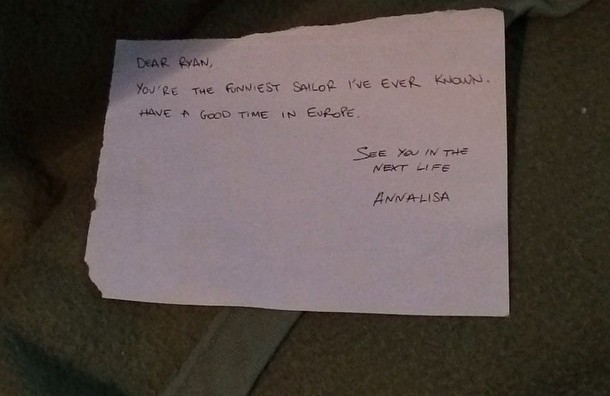 DEAR RYAN,
YOU'RE THE FUNNIEST SAILOR I'VE EVER KNOWN.
HAVE A GOOD TIME IN EUROPE.
SEE YOU IN THE
NEXT LIFE
ANNALISA